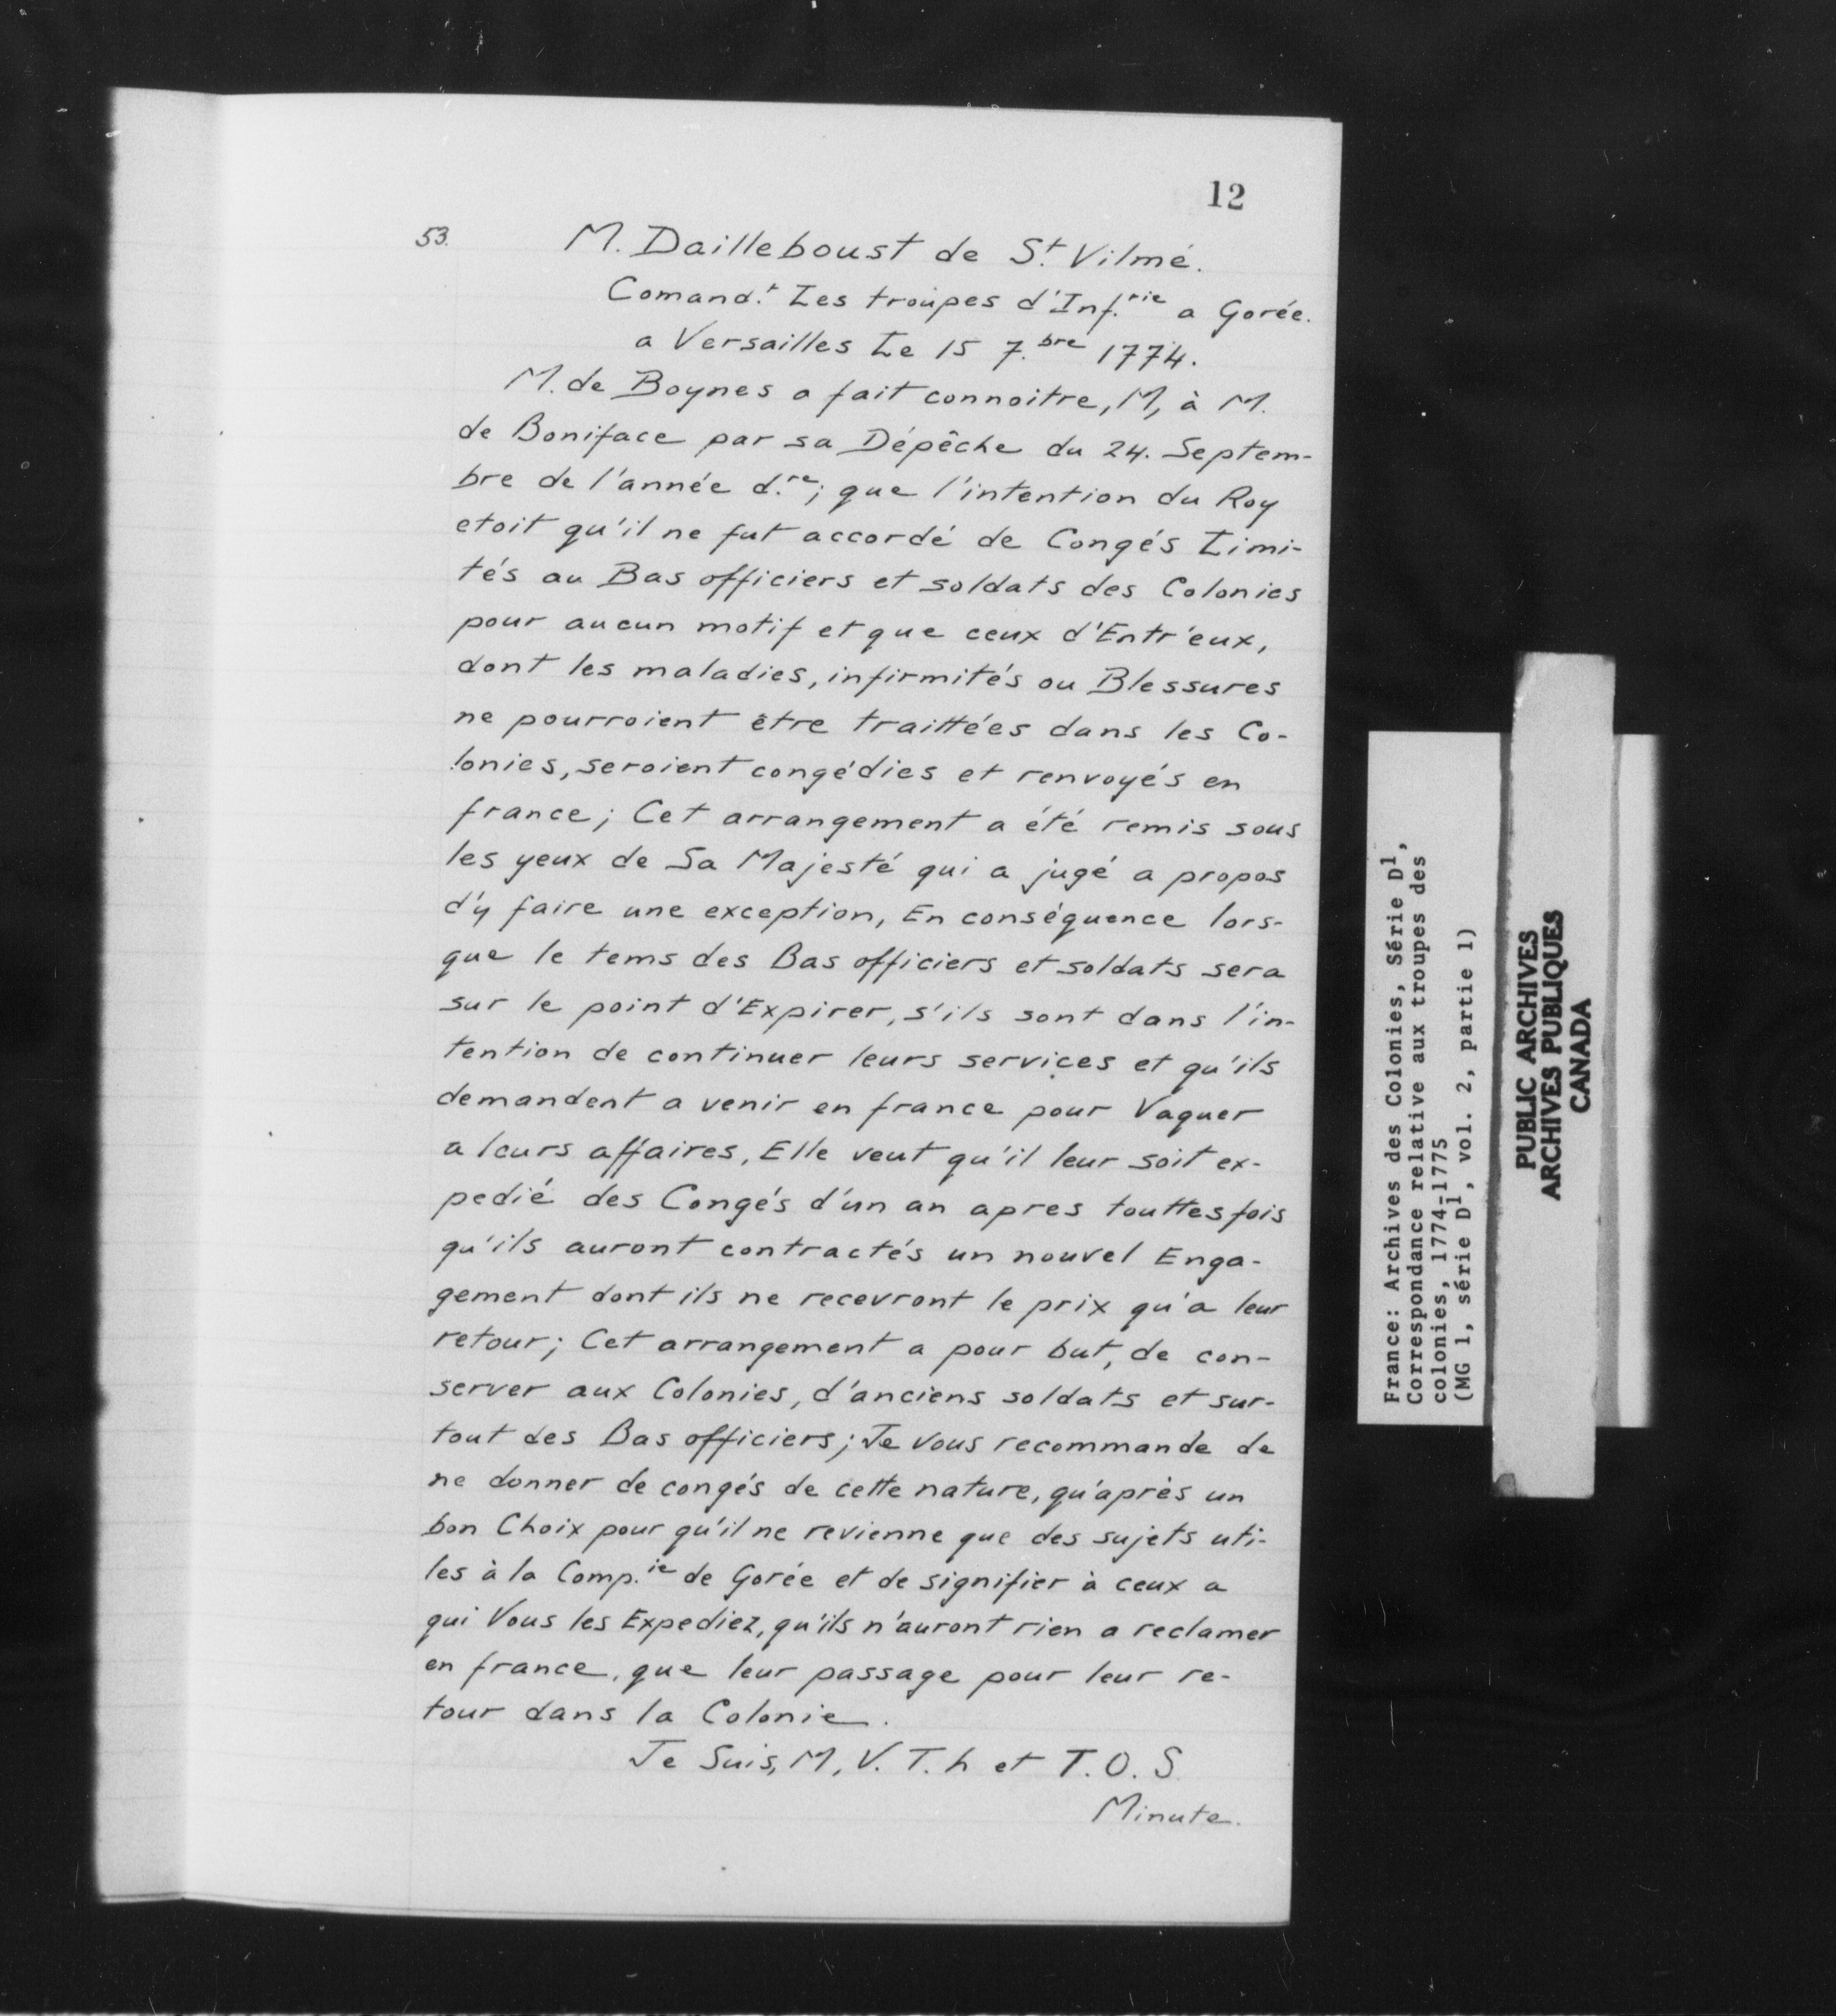 12
53.
M. Dailleboust de S.t Vilmé.
Comand.t Les troupes d'Inf.rie a Gorée.
a Versailles Le 15 7.bre 1774.
M. de Boynes a fait connoitre, M, à M.
de Boniface par sa Dépêche du 24. Septem-
bre de l'année d.re; que l'intention du Roy
etoit qu'il ne fut accordé de Congés Limi-
tés au Bas officiers et soldats des Colonies
pour aucun motif et que ceux d'Entr'eux,
dont les maladies, infirmités ou Blessures
ne pourroient être traittées dans les Co-
lonies, seroient congédies et renvoyés en
france; Cet arrangement a été remis sous
les yeux de Sa Majesté qui a jugé a propos
d'y faire une exception, En conséquence lors-
que le tems des Bas officiers et soldats sera
sur le point d'Expirer, s'ils sont dans l'in-
tention de continuer leurs services et qu'ils
demandent a venir en france pour Vaquer
a leurs affaires, Elle veut qu'il leur soit ex-
pedié des Congés d'un an apres touttes fois
qu'ils auront contractés un nouvel Enga-
gement dont ils ne recevront le prix qu'a leur
retour; Cet arrangement a pour but, de con-
server aux Colonies, d'anciens soldats et sur-
tout des Bas officiers; Je vous recommande de
ne donner de congés de cette nature, qu'après un
bon Choix pour qu'il ne revienne que des sujets uti-
les à la Comp.ie de Gorée et de signifier à ceux a
qui Vous les Expediez, qu'ils n'auront rien a reclamer
en france, que leur passage pour leur re-
tour dans la Colonie.
Je Suis, M, V. T. h et T. O. S.
Minute.
France: Archives des Colonies, Série D1,
Correspondance relative aux troupes des
colonies, 1774-1775
(MG 1, série D1, vol. 2, partie 1)
PUBLIC ARCHIVES
ARCHIVES PUBLIQUES
CANADA